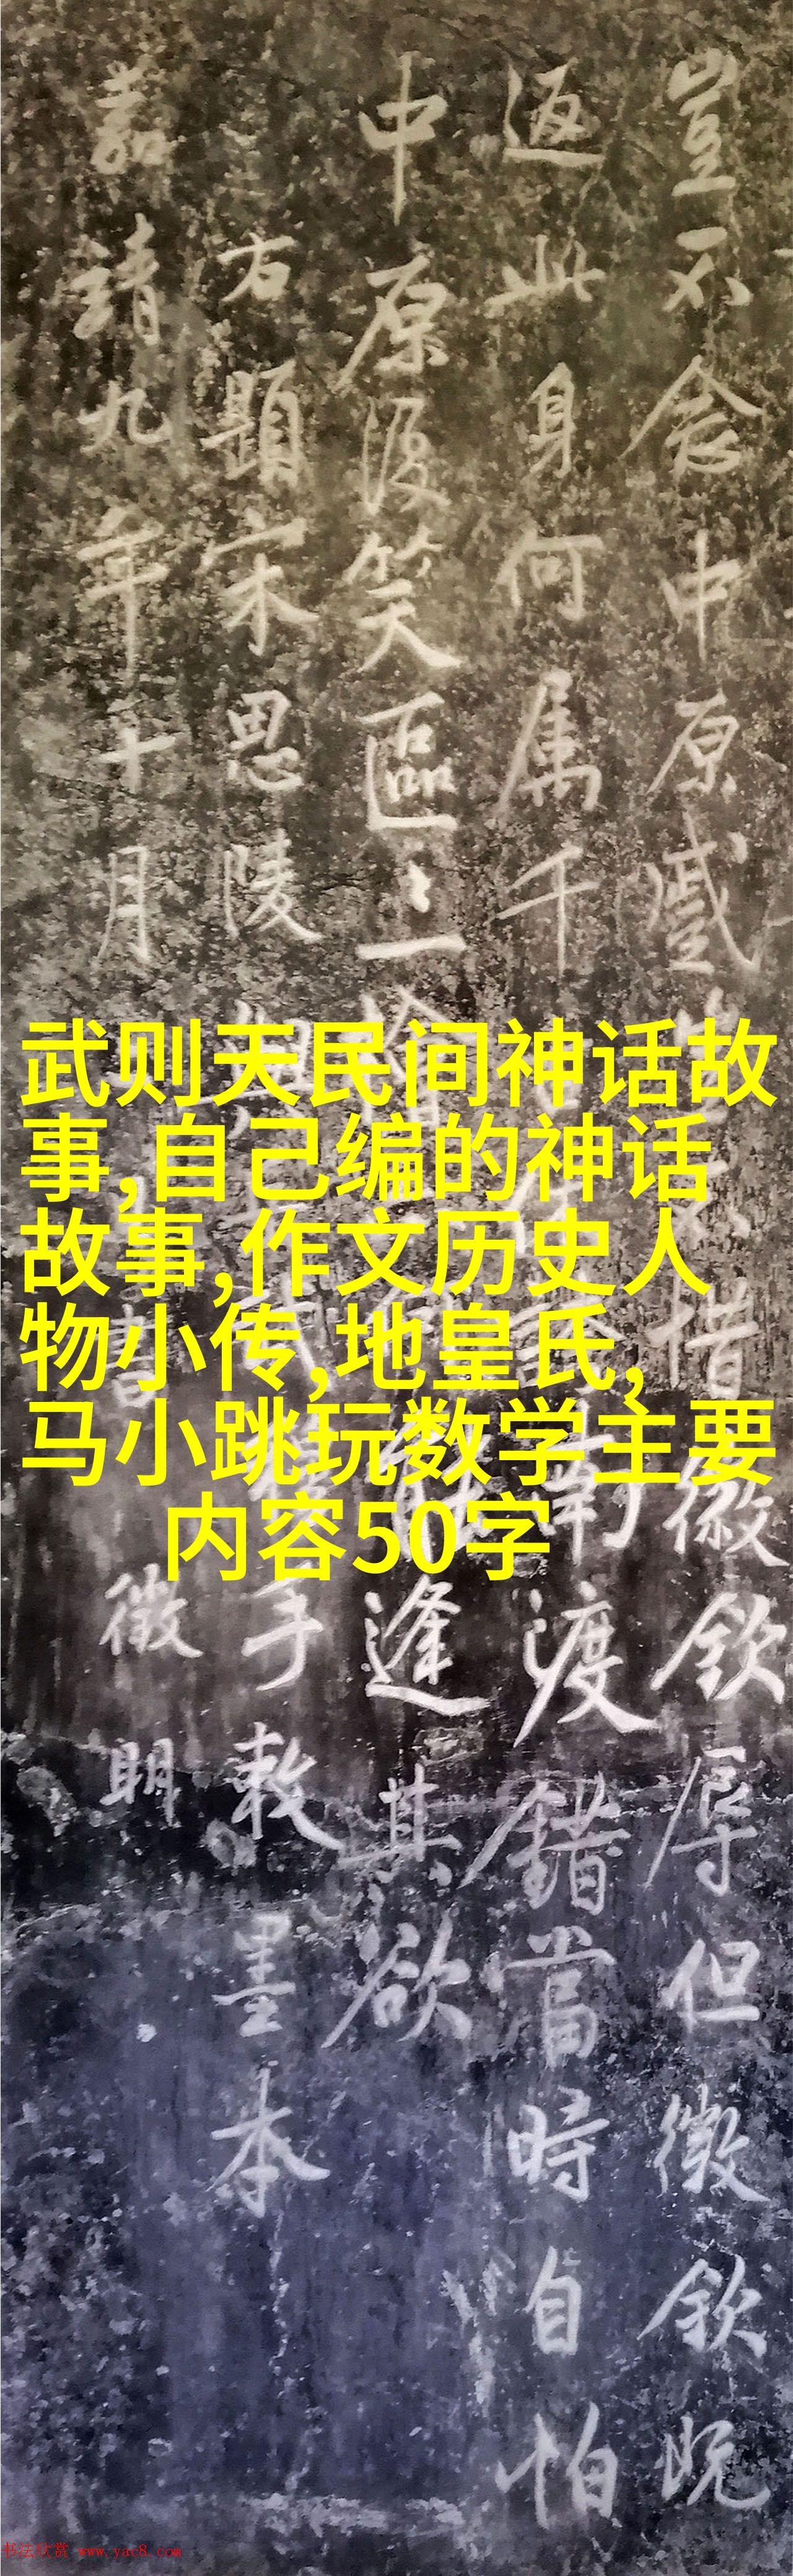 武则天民间神话故
事,自己编的神话
故事,作文历史人
物小传,地皇氏,
马小跳玩数学主要
内容50字
豈不念中原蹙惜徽欽辱但徽欽既
返此身何属千南渡錯當時自怕
中原復笑區〻一檜逢其欲
右題宋思陵與手敕墨本
嘉靖九年十月書徵明
书法欣赏 www.yac8.com